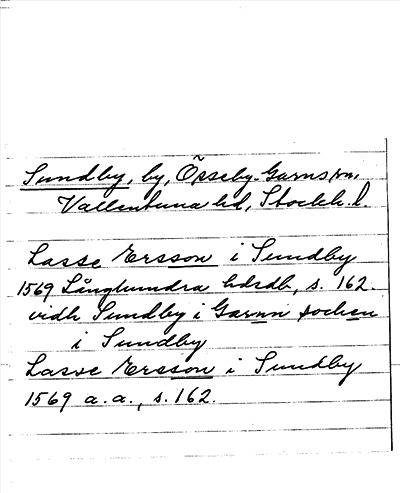 Sundby, by, Össeby-Garns sn,
Vallentuna hd, Stockh. l.
Lasse Ersson i Sundby
1569 Långhundra hdsdb, s. 162.
vidh Sundby i Garnn sochen
i Sundby
Lasse Ersson i Sundby
1569 a. a., s. 162.